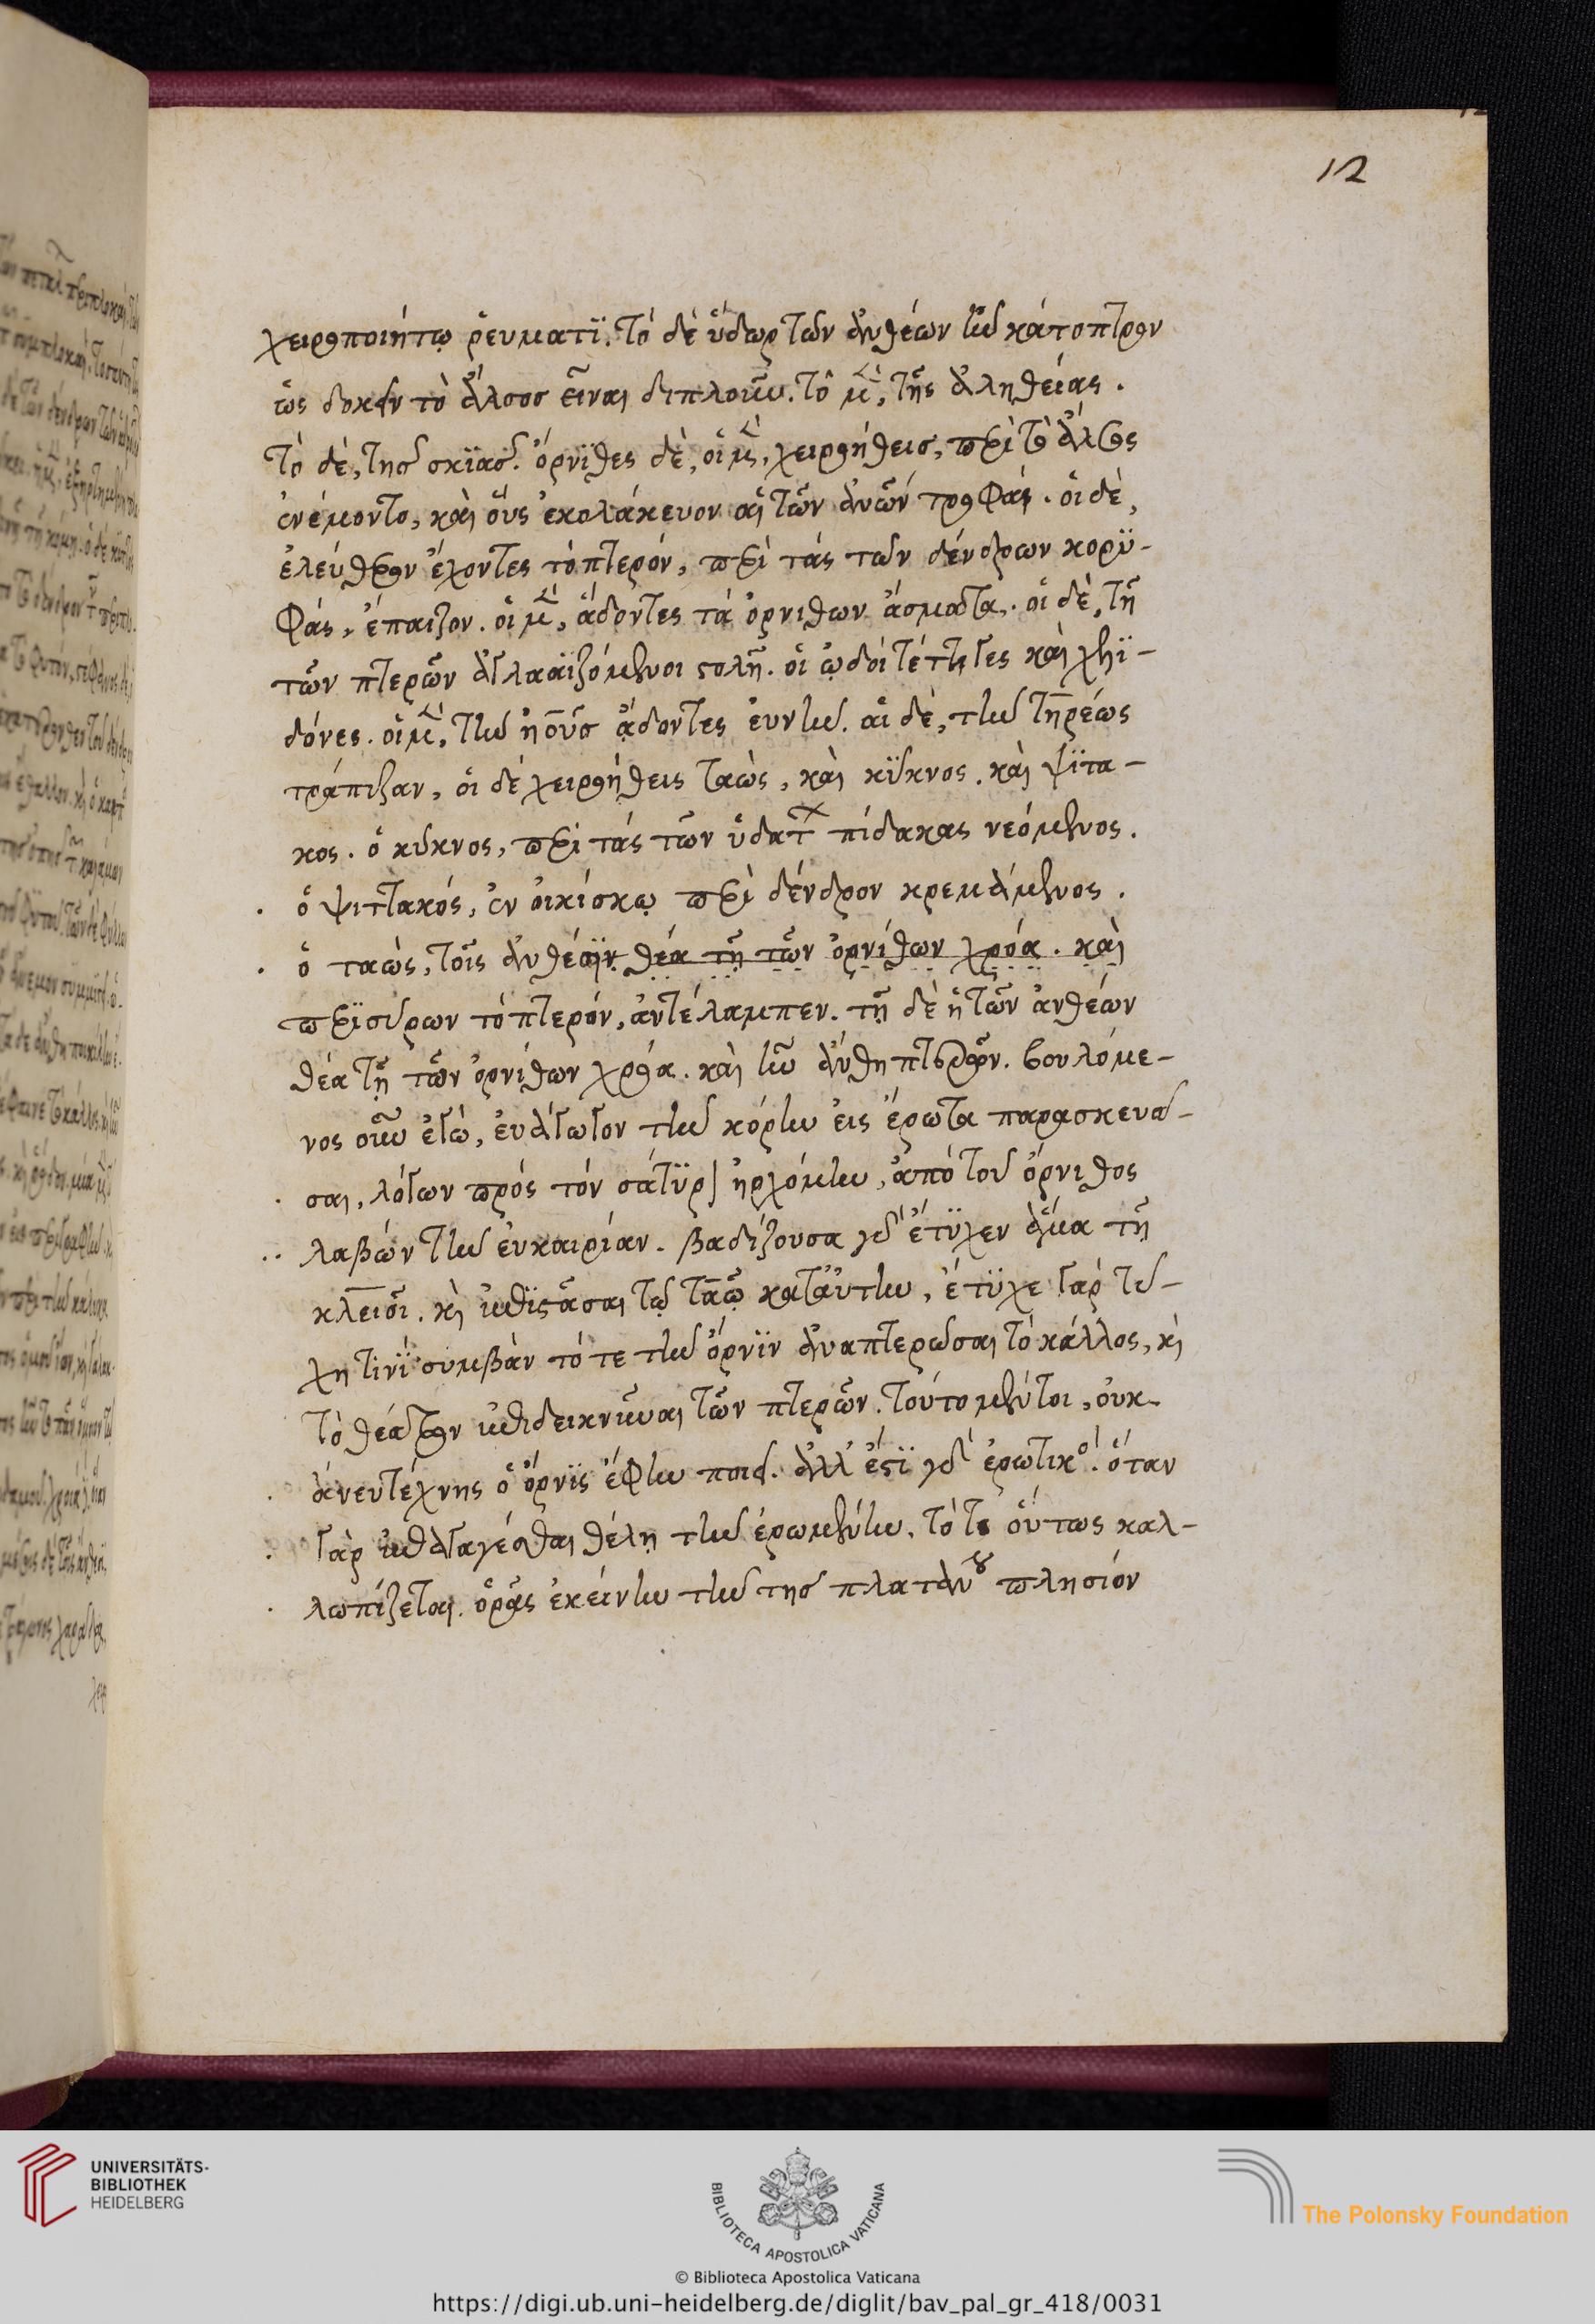 12
χειροποιήτῳ ῥεύματϊ. τὸ δὲ ὕδωρ τῶν ἀνθέων ἦν κάτοπτρον
ὡς δοκεῖν τὸ ἄλσος εἶναι διπλοῦν. τὸ μὲν, τῆς ἀληθείας.
τὸ δὲ, τῆς σκϊᾶς. ὄρνϊθες δὲ, οἱ μὲν, χειροήθεις, περὶ τὸ ἄλσος
ἐνέμοντο, καὶ οὓς ἐκολάκευον αἱ τῶν ἀνῶν τροφαί. οἱ δὲ,
ἐλεύθερον ἔχοντες τὸ πτερόν, περὶ τὰς τῶν δένδρων κορϋ-
φάς, ἔπαιζον. οἱ μὲν, ᾄδοντες τὰ ὀρνίθων ᾄσματα. οἱ δὲ, τῇ
τῶν πτερῶν ἀγλααϊζόμενοι στολῇ. οἱ ᾠδοὶ τέττιγες καὶ χελϊ-
δόνες. οἱ μὲν, τὴν ἠοῦς ᾄδοντες εὐνήν. αἱ δὲ, τὴν τηρέως
τράπεζαν, οἱ δὲ χειροήθεις ταὼς, καὶ κῦκνος. καὶ ψϊτα-
κος. ὁ κύκνος, περὶ τὰς τῶν ὑδάτων πίδακας νεόμενος.
ὁ ψιττακός, ἐν οἰκίσκῳ περὶ δένδρον κρεμάμενος.
ὁ ταὼς, τοῖς ἀνθέσϊν θέα τῇ τῶν ὀρνίθων χρόᾳ. καὶ
περϊσύρων τὸ πτερόν, ἀντέλαμπεν. τῇ δὲ ἡ τῶν ἀνθέων
θέα τῇ τῶν ὀρνίθων χρόᾳ. καὶ ἦν ἄνθη πτερῶν. βουλόμε-
νος οὖν ἐγὼ, εὐάγωγον τὴν κόρην εἰς ἔρωτα παρασκευά-
σαι, λόγων πρὸς τὸν σάτϋρον ἠρχόμην, ἀπὸ τοῦ ὄρνιθος
λαβὼν τὴν εὐκαιρίαν. βαδίζουσα γὰρ ἔτϋχεν ἅμα τῇ
κλειοῖ. κὶ ἐπϊστᾶσαι τῷ ταῷ κατάντην, ἔτϋχε γὰρ τύ-
χῃ τινὶ συμβὰν τότε τὴν ὄρνϊν ἀναπτερῶσαι τὸ κάλλος, κὶ
τὸ θέατρον ἐπιδεικνῦναι τῶν πτερῶν. τοῦτο μέντοι, οὐκ
ἄνευ τέχνης ὁ ὄρνϊς ἔφην ποιεῖ. ἀλλ' ἔστϊ γὰρ ἐρωτικός. ὅταν
γὰρ ἐπαγαγέσθαι θέλῃ τὴν ἐρωμένην, τότε οὕτως καλ-
λωπίζεται. ὁρᾷς ἐκείνην τὴν τῆς πλατάνου πλησίον
UNIVERSITÄTS-
BIBLIOTHEK
HEIDELBERG
BIBLIOTECA APOSTOLICA VATICANA
The Polonsky Foundation
© Biblioteca Apostolica Vaticana
https://digi.ub.uni-heidelberg.de/diglit/bav_pal_gr_418/0031